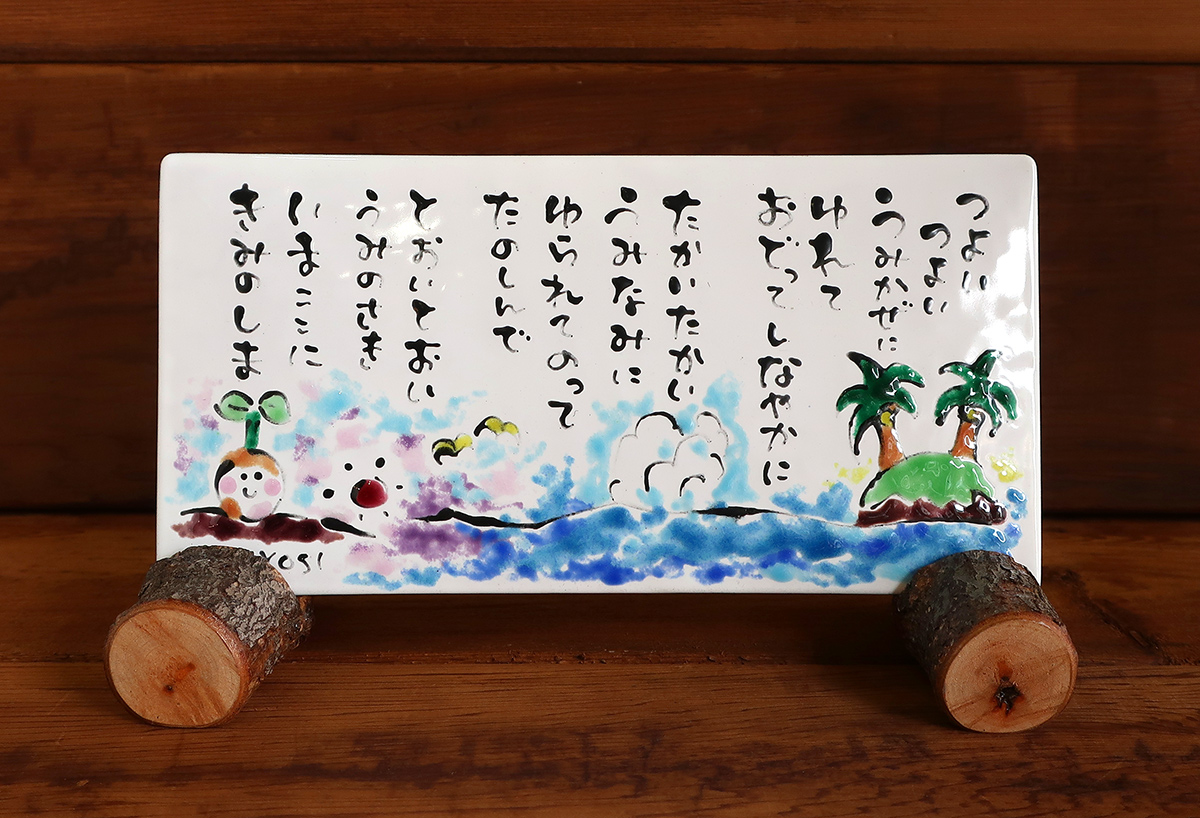 つよい
つよい
うみかぜに
ゆれて
おどってしなやかに
たかいたかい
うみなみに
ゆられてのって
たのしんで
とおいとおい
うみのさき
いまここに
きみのしま
YOSI